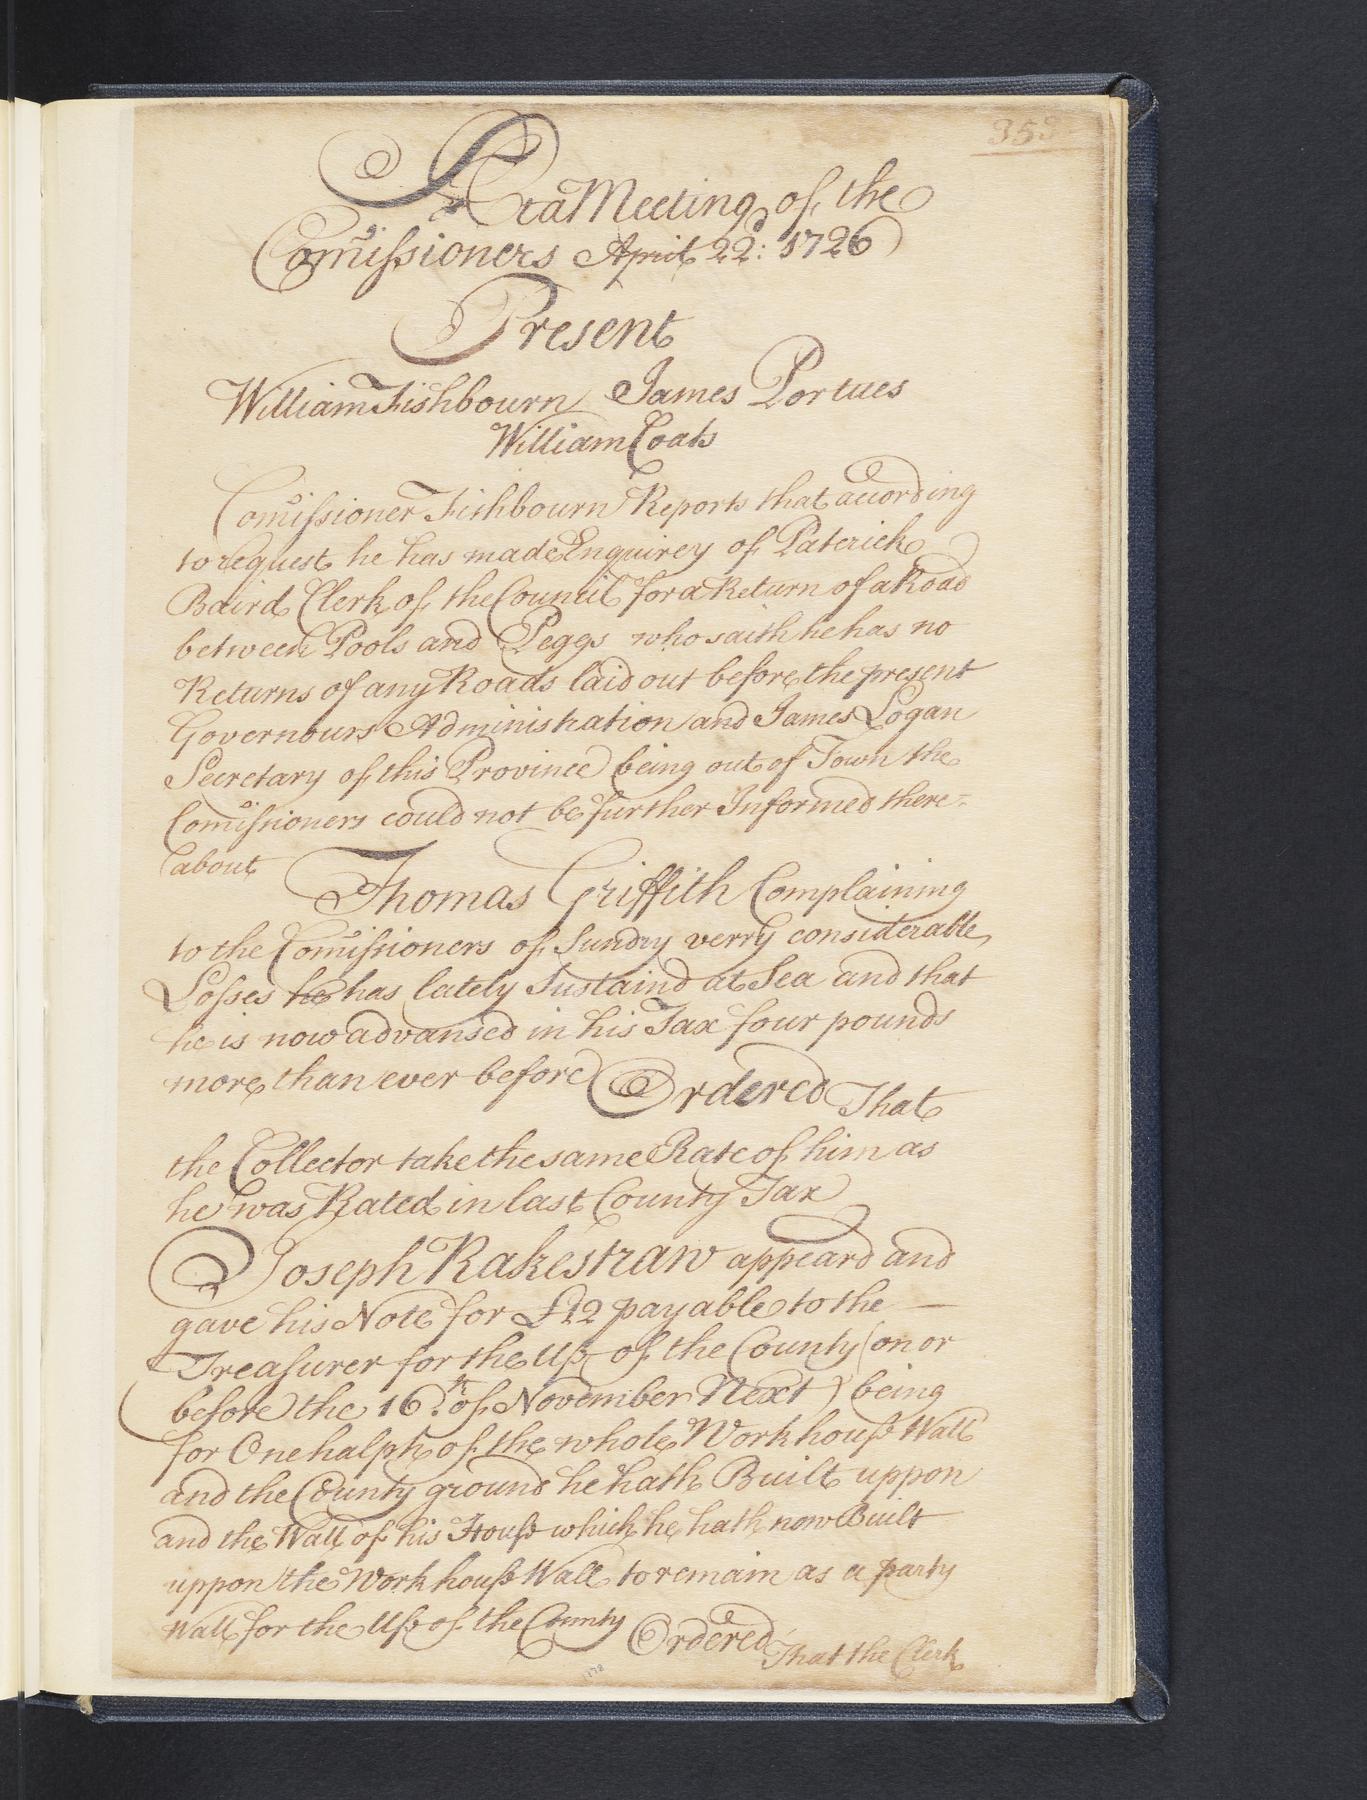 353
At a Meeting of the
Comissioners April 22d: 1726
Present
William Fishbourn James Portues
William Coats
Comissioner Fishbourn Reports that according
to request he has made Enquirey of Paterick
Baird Clerk of the Council for a Return of a Road
between Pools and Peggs who saith he has no
Returns of any Roads laid out before the present
Governours Administration and James Logan
Secretary of this Province being out of Town the
Comissioners could not be further Informed there=
about
Thomas Griffith Complaining
to the Comissioners of Sundry verry considerable
Losses he has lately Sustaind at Sea and that
he is now advansed in his Tax four pounds
more than ever before Ordered That
the Collector take the same Rate of him as
he was Rated in last County Tax
Joseph Rakestraw appeard and
gave his Note for £12 payable to the —
Treasurer for the Use of the County (on or
before the 16th. of November Next) being
for One halph of the whole Workhouse Wall
and the County ground he hath Built uppon
and the Wall of his House which he hath now Built
uppon the Workhouse Wall to remain as a party
Wall for the Use of the County Ordered That the Clerk
178